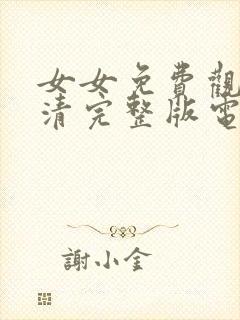 女女免費觀
清完整版電
謝小金